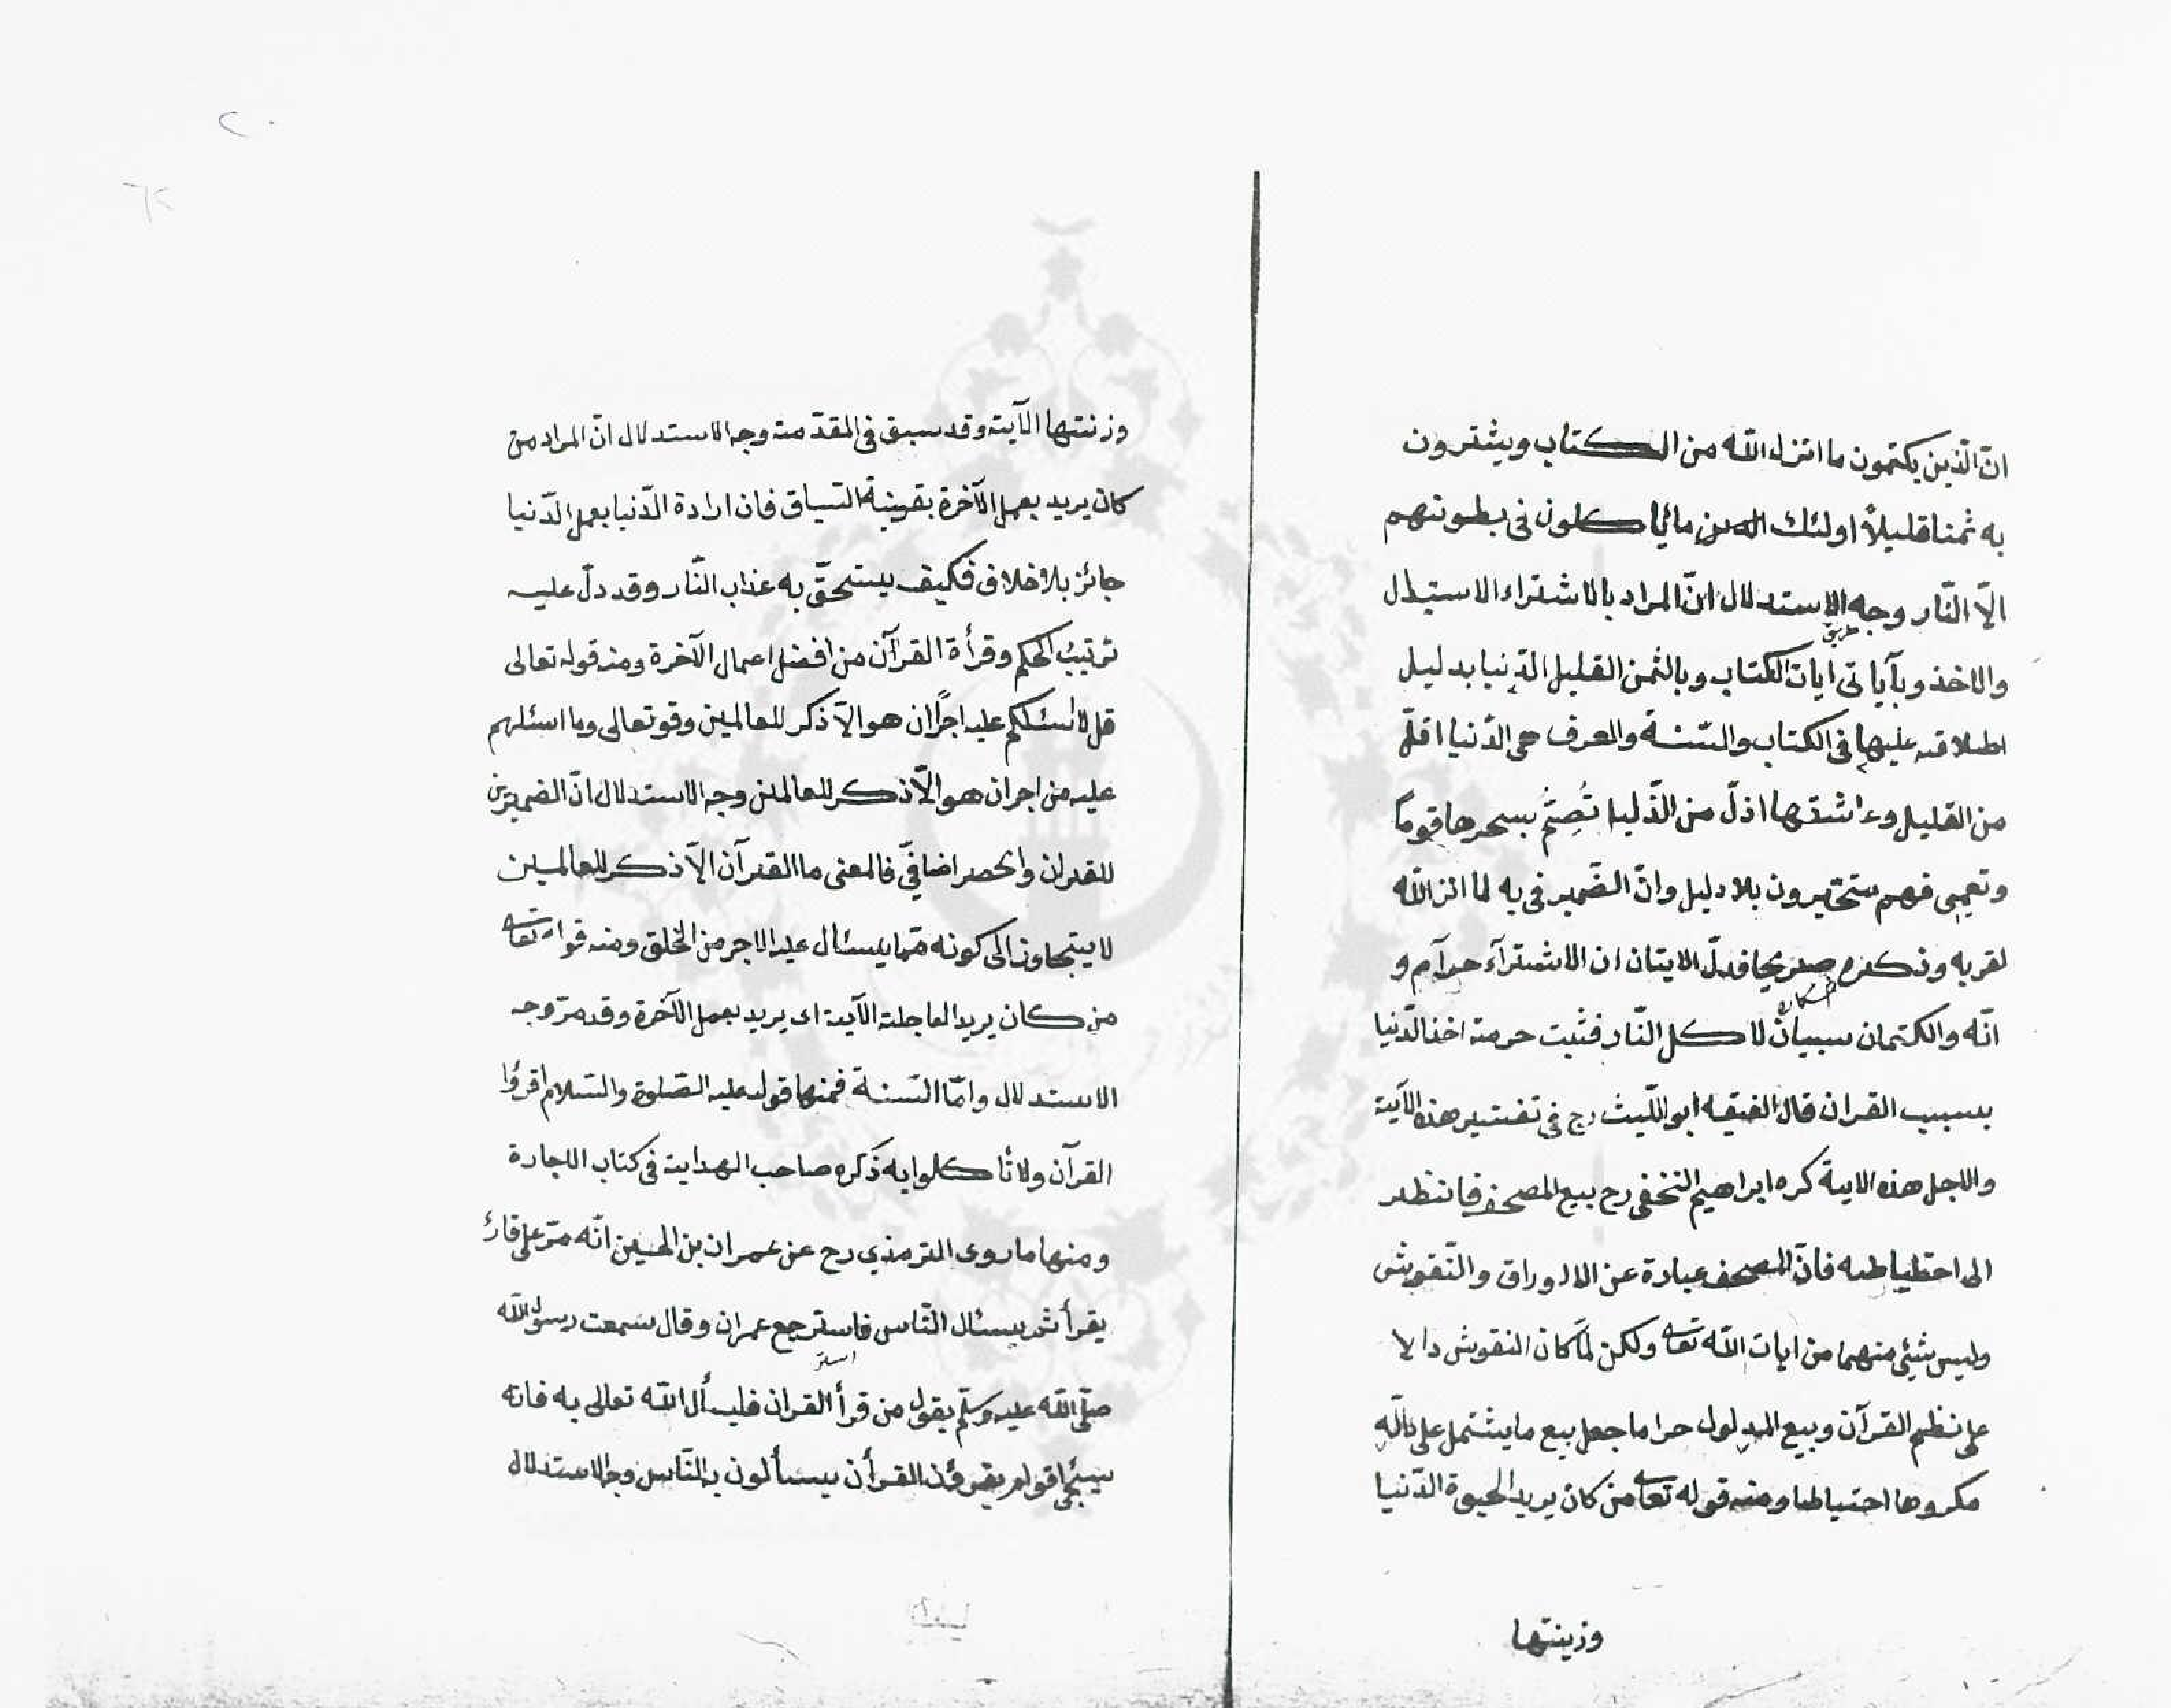 انّ الّذين يكتمون ما انزل اللّه من الكتاب ويشترون
به ثمنا قليلاً اولئك الذين ما ياكلون فى بطونهم
الّا النّار وجه الاستدلال انّ المراد بالاشتراء الاستبدال
والاخذ وبآياتى ايات الكتاب وبالثمن القليل الدّنيا بدليل
طريق
اطلاقه عليها فى الكتاب والسّنة والعرف هى الدّنيا اقلّ
من القليل وعاشقها اذلّ من الذّليل تُصِمُّ بسحرها قوماً
وتعمى فهم متحّيرون بلا دليل وانّ الضّمير فى به لما انزاللّه
لقربه وذكره صريحا فدلّ الايتان ان الاشتراء حرآم و
انّه والكتمان سببان لاكل النّار فثبت حرمة اخذ الدّنيا
بسبب القران قال الفقيه ابو اللّيث رح فى تفسير هذه الآية
والاجل هذه الاية كره ابراهيم النخفى رح بيع المصحف فانظر
الى احتطياطه فانّ المصحف عبارة عن الاوراق والنّقوش
وليس شيئ منهما من ايات اللّه تعا ولكن لمّا كان النقوش دالا
على نظم القرآن وبيع المدلول حراما جعل بيع ما يشتمل على دالّه
مكروها احتياطا ومنه قوله تعا من كان يريد الحيوة الدّنيا
وزينتها
٢٠
٦٢
وزنتها الآية وقد سبق فى المقدّمة وجه الاستدلال انّ المراد من
كان يريد بعمل الآخرة بقرينة السياق فان ارادة الدّنيا بعمل الدّنيا
جائز بلا خلاف فكيف يستحقّ به عذاب النّار وقد دلّ عليه
ترتيب الحكم وقرأة القرآن من افضل اعمال الآخرة ومنه قوله تعالى
قل لا اسئلكم عليه اجرًا ان هو الّا ذكر للعالمين وقو تعالى وما اسئلهم
عليه من اجر ان هو الّا ذكر للعالمين وجه الاستدلال انّ الضميرين
للقران والحصر اضافىّ فالمعنى ما القرآن الّا ذكر للعالمين
لا يتجاوز الى كونه مّما يسئال عليه الاجر من الخلق ومنه قوله تعا
من كان يريد العاجلة الآية اى يريد بعمل الآخرة وقد مرّ وجه
الاستدلال وامّا السّنة فمنها قوله عليه الصّلوة والسّلام اقرؤا
القرآن ولا تأكلوا به ذكره صاحب الهداية فى كتاب الاجارة
ومنها ما روى الترمذى رح عن عمران بن الحسين انّه مرّ على قارئ
يقرأ ثم يسئال النّاس فاسترجع عمران وقال سمعت رسول اللّه
صلّى اللّه عليه وسلّم يقول من قرأ القران فليسأل اللّه تعالى به فانه
سيجئ اقوام يقرؤن القرأن يسألون به النّاس وجه الاستدلال